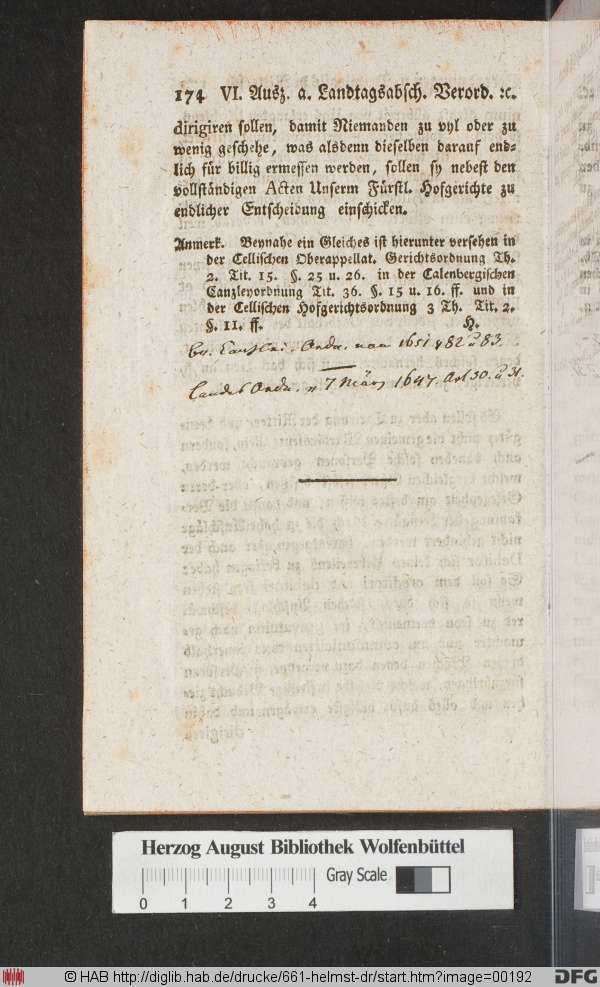 174 VI. Ausz. a. Landtagsabsch. Verord. ꝛc.
dirigiren sollen, damit Niemanden zu vyl oder zu
wenig geschehe, was alsdenn dieselben darauf end⸗
lich für billig ermessen werden, sollen sy nebest den
vollständigen Acten Unserm Fürstl. Hofgerichte zu
endlicher Entscheidung einschicken.
Anmerk. Beynahe ein Gleiches ist hierunter versehen in
der Cellischen Oberappellat. Gerichtsordnung Th.
2. Tit. 15. §. 25 u. 26. in der Calenbergischen
Canzleyordnung Tit. 36. §. 15 u. 16. ff. und in
der Cellischen Hofgerichtsordnung 3 Th. Tit. 2.
§. 11. ff. H.
Ordn. von 1651 § 82 83.
Landes Ordn. 7 März 1647. Art 30. 31.
Herzog August Bibliothek Wolfenbüttel
Gray Scale
0 1 2 3 4
© HAB http://diglib.hab.de/drucke/661-helmst-dr/start.htm?image=00192
DFG